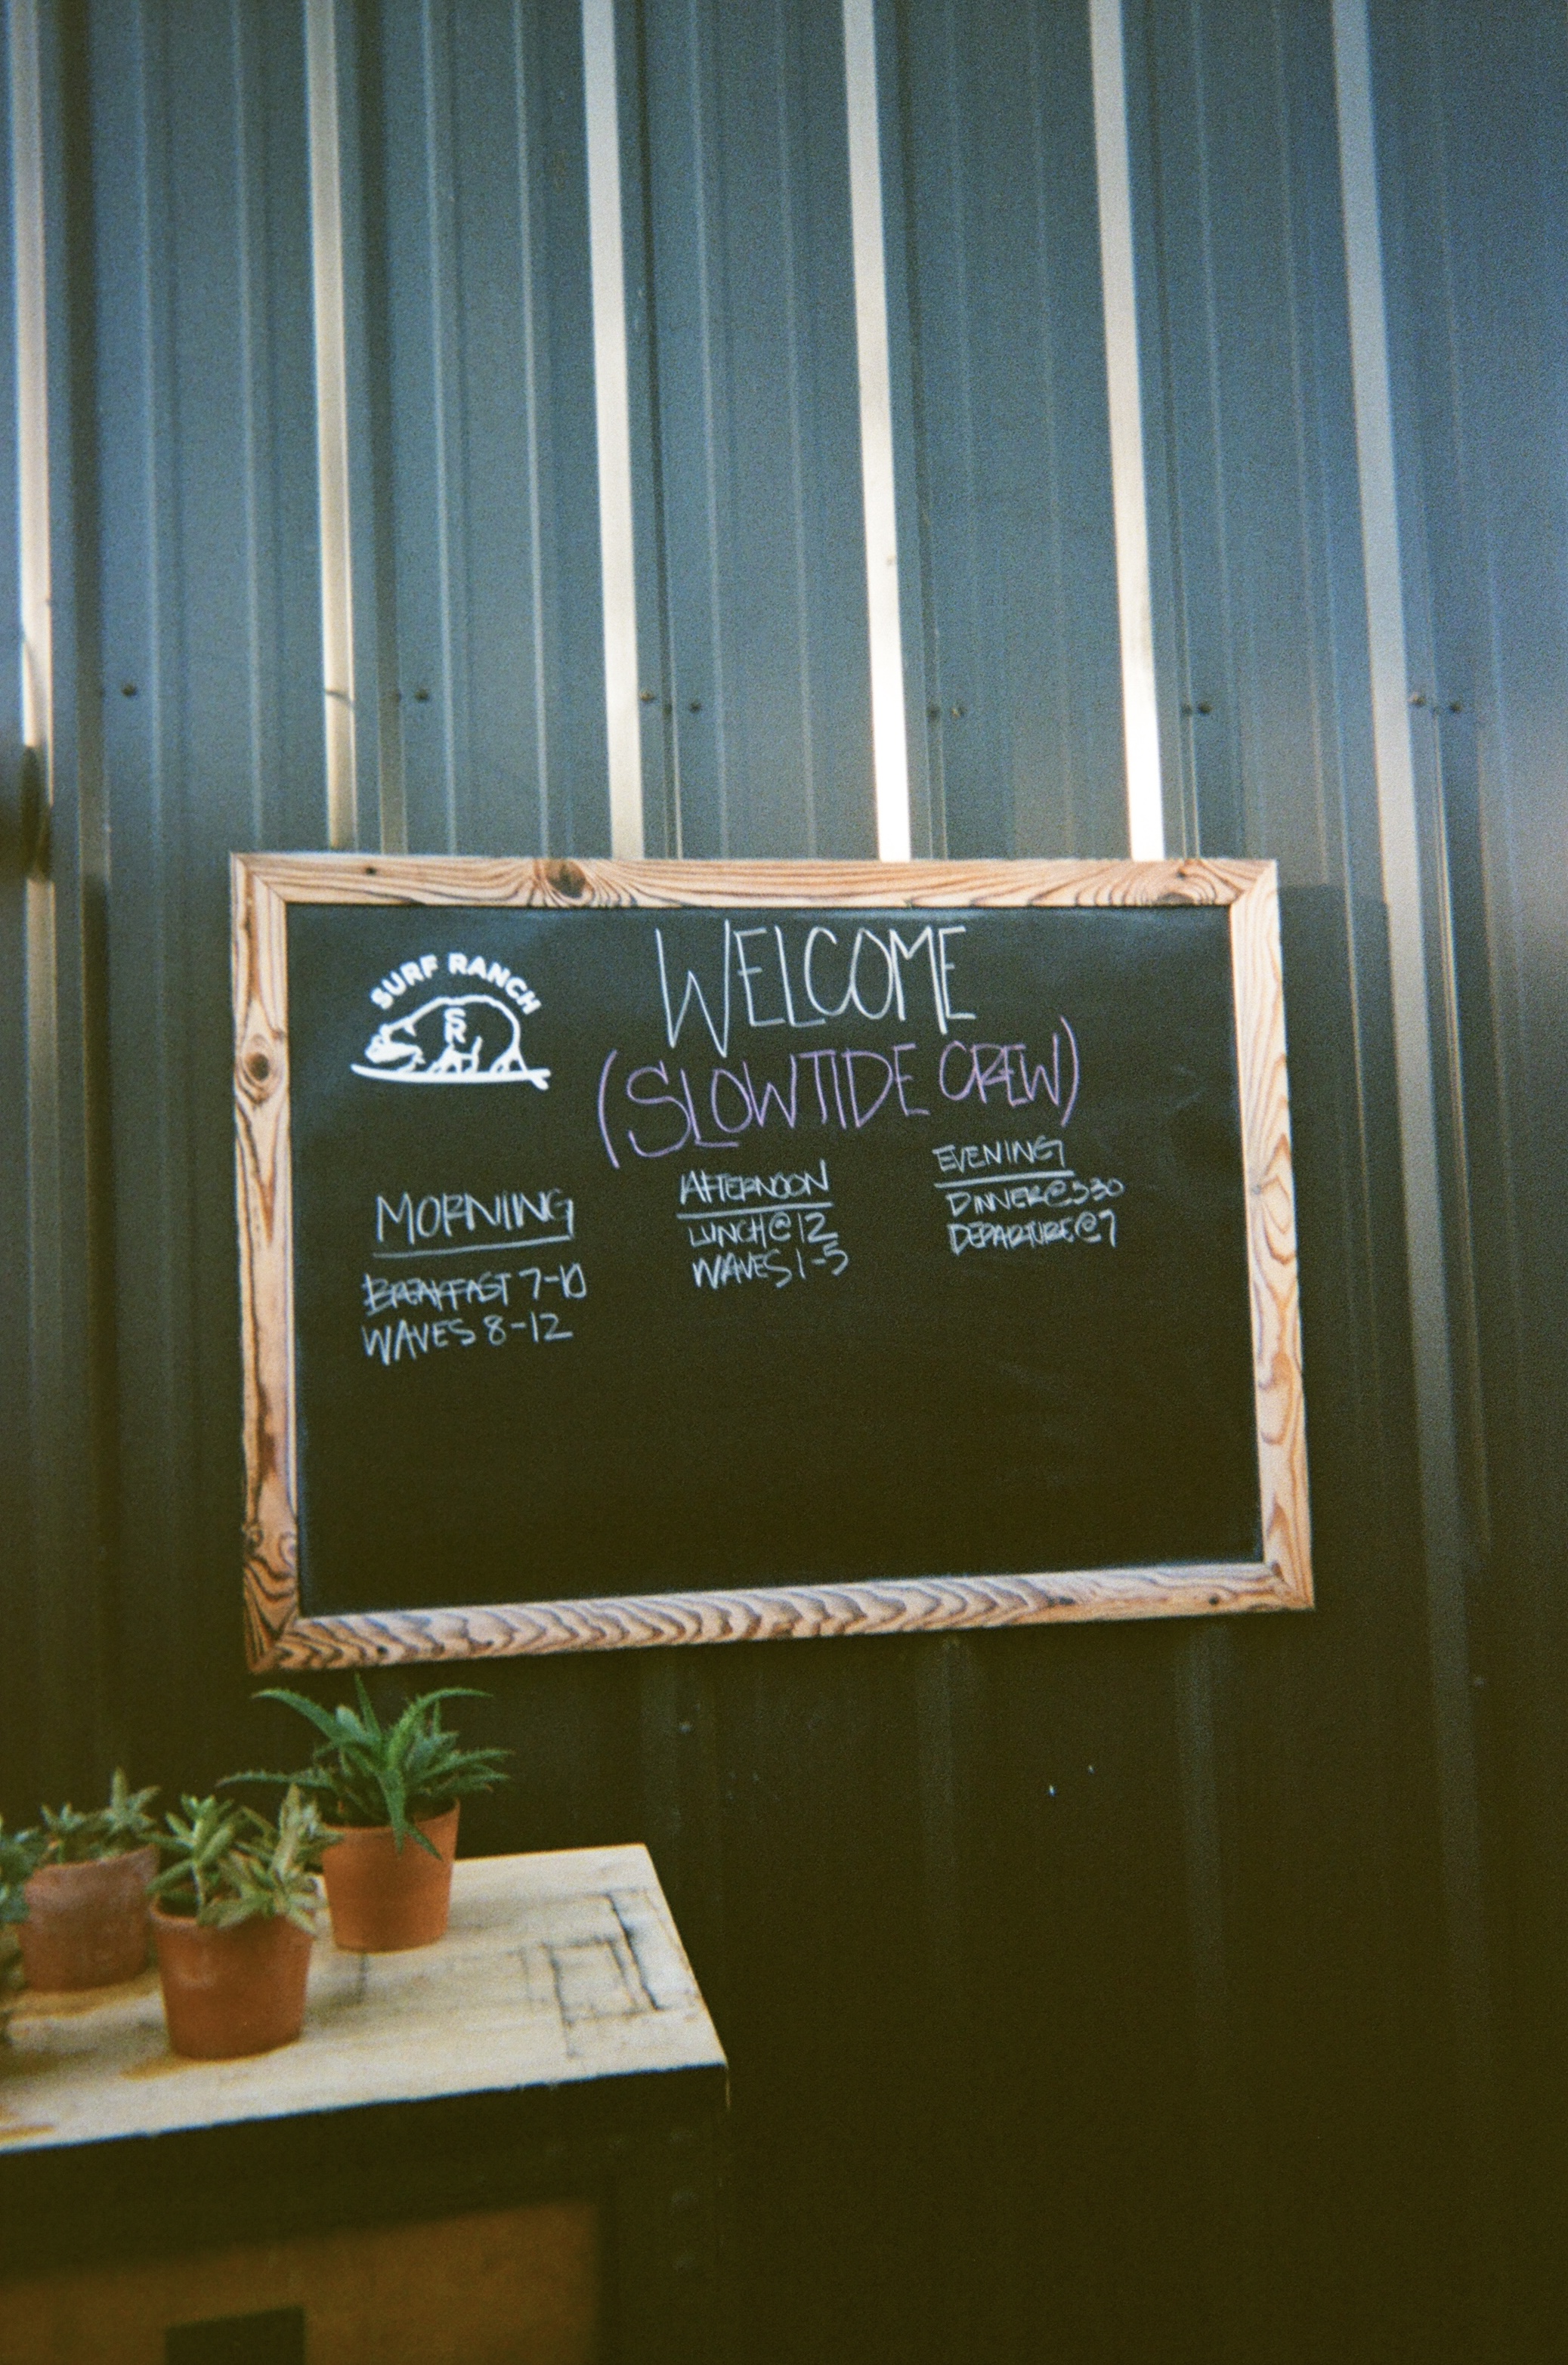 SURF RANCH
SR
WELCOME
(SLOWTIDE CREW)
MORNING
BREAKFAST 7-10
WAVES 8-12
AFTERNOON
LUNCH @ 12
WAVES 1-5
EVENING
DINNER @ 530
DEPARTURE @ 7